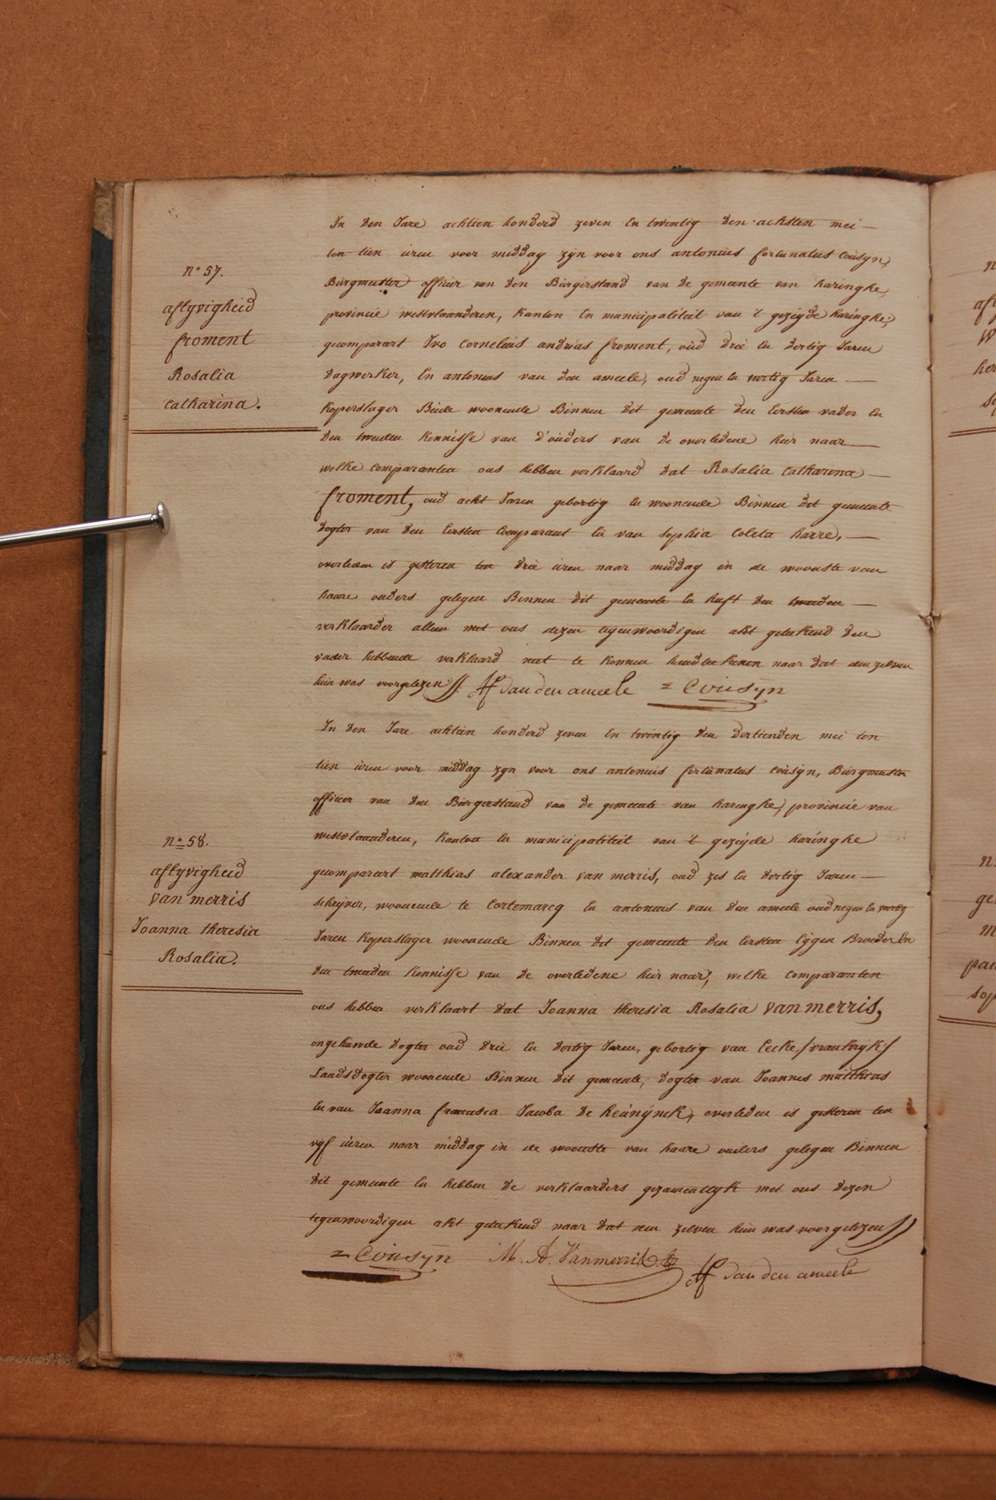 n° 57.
aflyvigheid
froment
Rosalia
Catharina.
In den Jare achtien honderd zeven en twintig den achsten mei
ten tien uren voor middag zyn voor ons antonius fortunatus Cousyn,
Burgmeester officier van den Burgerstand van de gemeente van haringhe,
provincie westvlaanderen, kanton en municipaliteit van 't gezeyde haringhe,
gecomparart Ivo Cornelius andrias froment, oud drie en dertig Jaren
dagwerker, en antonius van den ameele, oud negen en veertig Jaren
koperslager Beide woonende Binnen dit gemeente den Eersten vader en
den tweeden kennisse van d'ouders van de overledene hier naar
welke comparanten ons hebben verklaard dat Rosalia Catharina
froment, oud acht Jaren gebortig en woonende Binnen dit gemeente
dogter van den Eersten Comparant en van sophia Coleta harre,
overleden is gisteren ten drie uren naar middag in de wooniste van
haare ouders gelegen Binnen dit gemeente en heeft den tweeden
verklaarder alleen met ons dezen tegenwoordigen akt geteekend den
vader hebbende verklaard niet te konnen handteekenen naar dat aen zelven
hun was voorgelezen. AF van den ameele = Cousyn
n° 58.
aflyvigheid
van merris
Joanna theresia
Rosalia.
In den Jare achtien honderd zeven en twintig den dertienden mei ten
tien uren voor middag zyn voor ons antonius fortunatus Cousyn, Burgmeester
officier van den Burgerstand van de gemeente van haringhe, provincie van
westvlaanderen, kanton en municipaliteit van 't gezeyde haringhe
gecomparart matthias alexander van merris, oud zes en dertig Jaren
woonende te Cortemarcq en antonius van den ameele oud negen en veertig
Jaren koperslager woonende Binnen dit gemeente den Eersten Eygen Broeder en
den tweeden kennisse van de overledene hier naar, welke comparanten
ons hebben verklaart dat Joanna theresia Rosalia vanmerris,
ongehuwde dogter oud drie en dertig Jaren, gebortig van Eecke /vrankryk/
Landsdogter woonende Binnen dit gemeente, dogter van Joannes matthias
en van Joanna francisca Jacoba de heunynck, overleden is gisteren ten
vyf uren naar middag in de wooniste van haare ouders gelegen Binnen
dit gemeente en hebben de verklaarders gezamentlyk met ons dezen
tegenwoordigen akt geteekend naar dat aen zelven hun was voorgelezen
= Cousyn M. A. Vanmerris
AF van den ameele